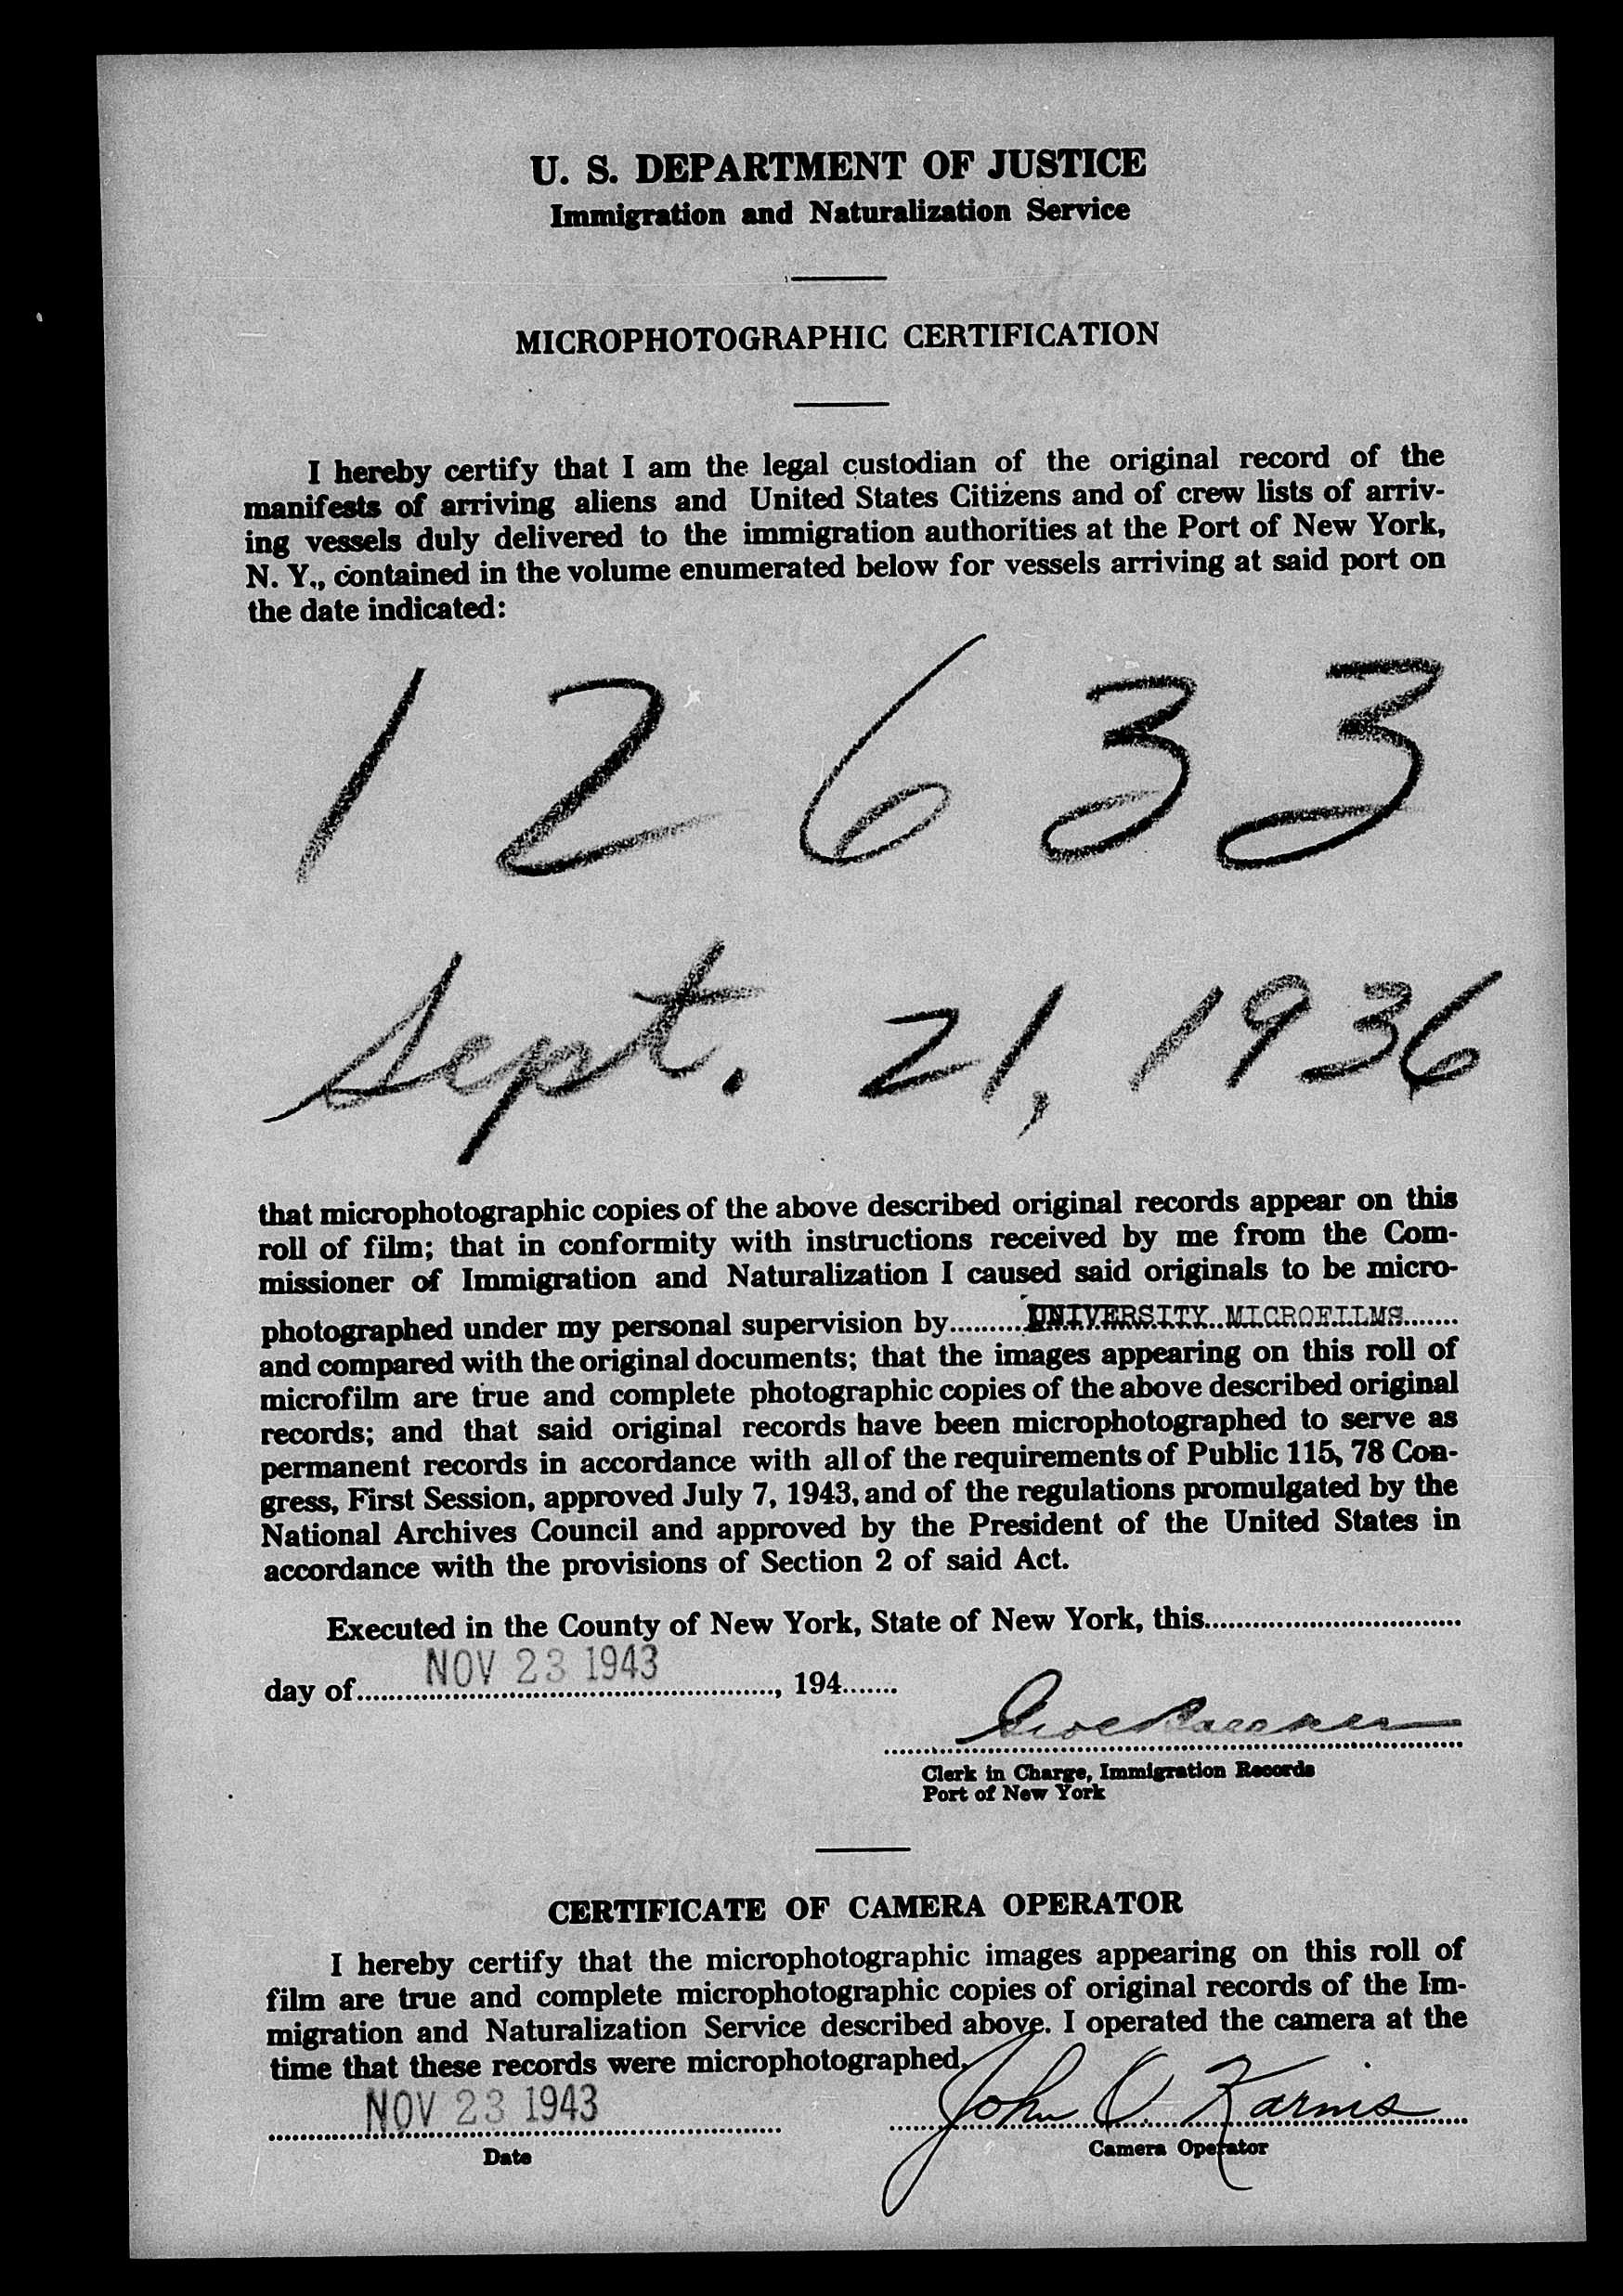 U. S. DEPARTMENT OF JUSTICE
Immigration and Naturalization Service
MICROPHOTOGRAPHIC CERTIFICATION
I hereby certify that I am the legal custodian of the original record of the
manifests of arriving aliens and United States Citizens and of crew lists of arriv-
ing vessels duly delivered to the immigration authorities at the Port of New York,
N. Y., contained in the volume enumerated below for vessels arriving at said port on
the date indicated:
12633
Sept. 21, 1936
that microphotographic copies of the above described original records appear on this
roll of film; that in conformity with instructions received by me from the Com-
missioner of Immigration and Naturalization I caused said originals to be micro-
photographed under my personal supervision by..........UNIVERSITY MICROFILMS.......
and compared with the original documents; that the images appearing on this roll of
microfilm are true and complete photographic copies of the above described original
records; and that said original records have been microphotographed to serve as
permanent records in accordance with all of the requirements of Public 115, 78 Con-
gress, First Session, approved July 7, 1943, and of the regulations promulgated by the
National Archives Council and approved by the President of the United States in
accordance with the provisions of Section 2 of said Act.
Executed in the County of New York, State of New York, this................................
day of NOV 23 1943, 194.......
Clerk in Charge, Immigration Records
Port of New York
CERTIFICATE OF CAMERA OPERATOR
I hereby certify that the microphotographic images appearing on this roll of
film are true and complete microphotographic copies of original records of the Im-
migration and Naturalization Service described above. I operated the camera at the
time that these records were microphotographed.
NOV 23 1943 John O Karnis
Date Camera Operator